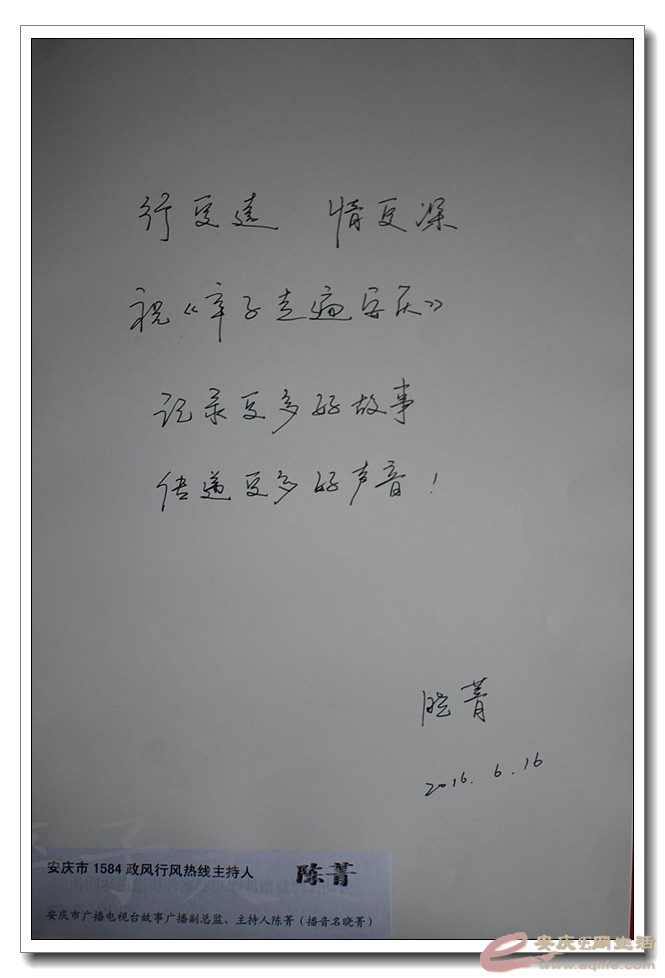 行更远 情更深
祝《辛子走遍安庆》
记录更多的故事
传递更多的声音！
晓菁
2016.6.16
安庆市1584政风行风热线主持人 陈菁
安庆市广播电视台故事广播副总监、主持人陈菁（播音名晓菁）
安庆E网生活
www.aqlife.com